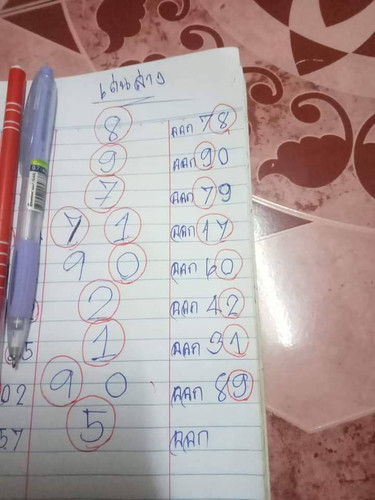 เด่นล่าง
8 ออก 78
9 ออก 90
7 ออก 79
7 1 ออก 17
9 0 ออก 60
2 ออก 42
5 1 ออก 91
02 9 0 ออก 89
57 5 ออก